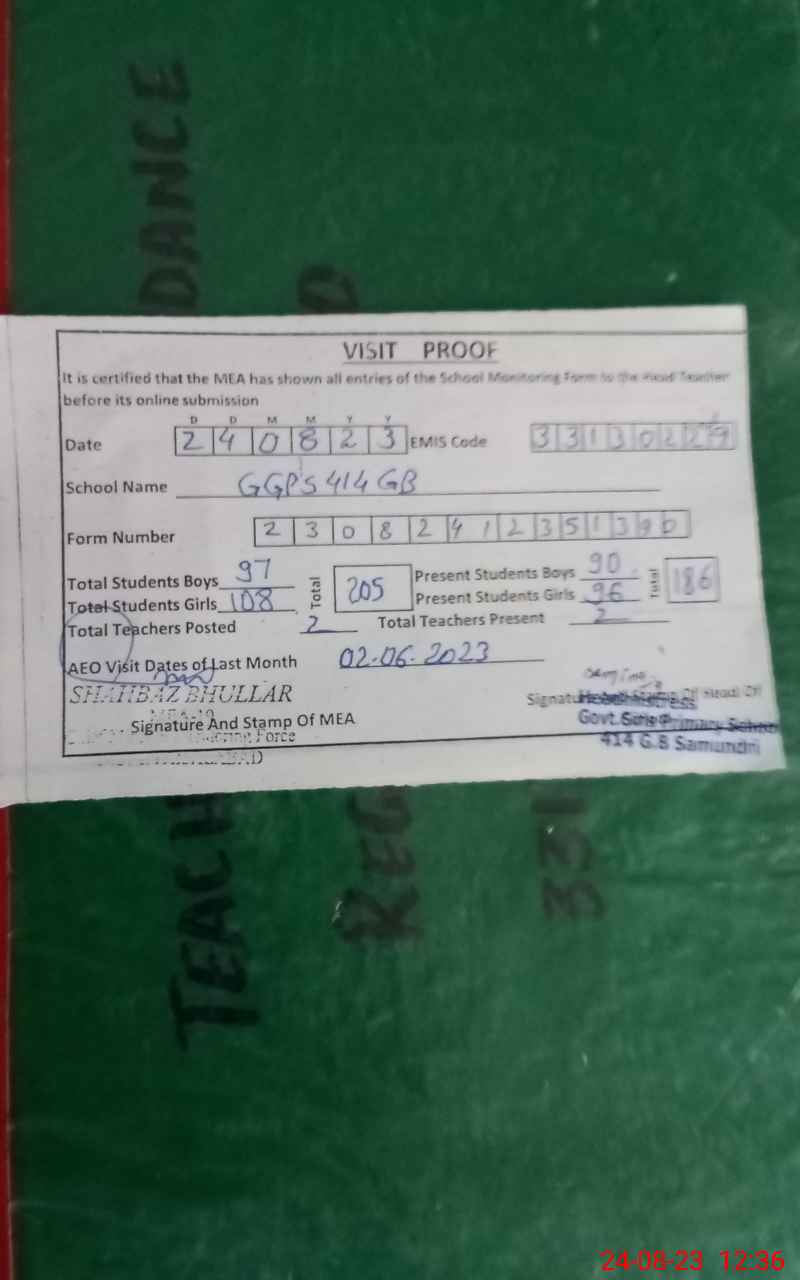 DANCE
VISIT PROOF
It is certified that the MEA has shown all entries of the School Monitoring Form to the Head Teacher
before its online submission
D D M M Y Y
Date 2 4 0 8 2 3 EMIS Code 3 3 1 3 0 2 2 9
School Name GGPS 414 GB
Form Number 2 3 0 8 2 4 1 2 3 5 1 3 9 0
Total Students Boys 97 Total 205 Present Students Boys 90 Total 186
Total Students Girls 108 Present Students Girls 96
Total Teachers Posted 2 Total Teachers Present 2
AEO Visit Dates of Last Month 02.06.2023
SHAHBAZ BHULLAR
Signature And Stamp Of MEA
Force
Signature Of Head
Govt. Girls Primary School
414 G.B Samundri
TEACH
REG
331
24-08-23 12:36